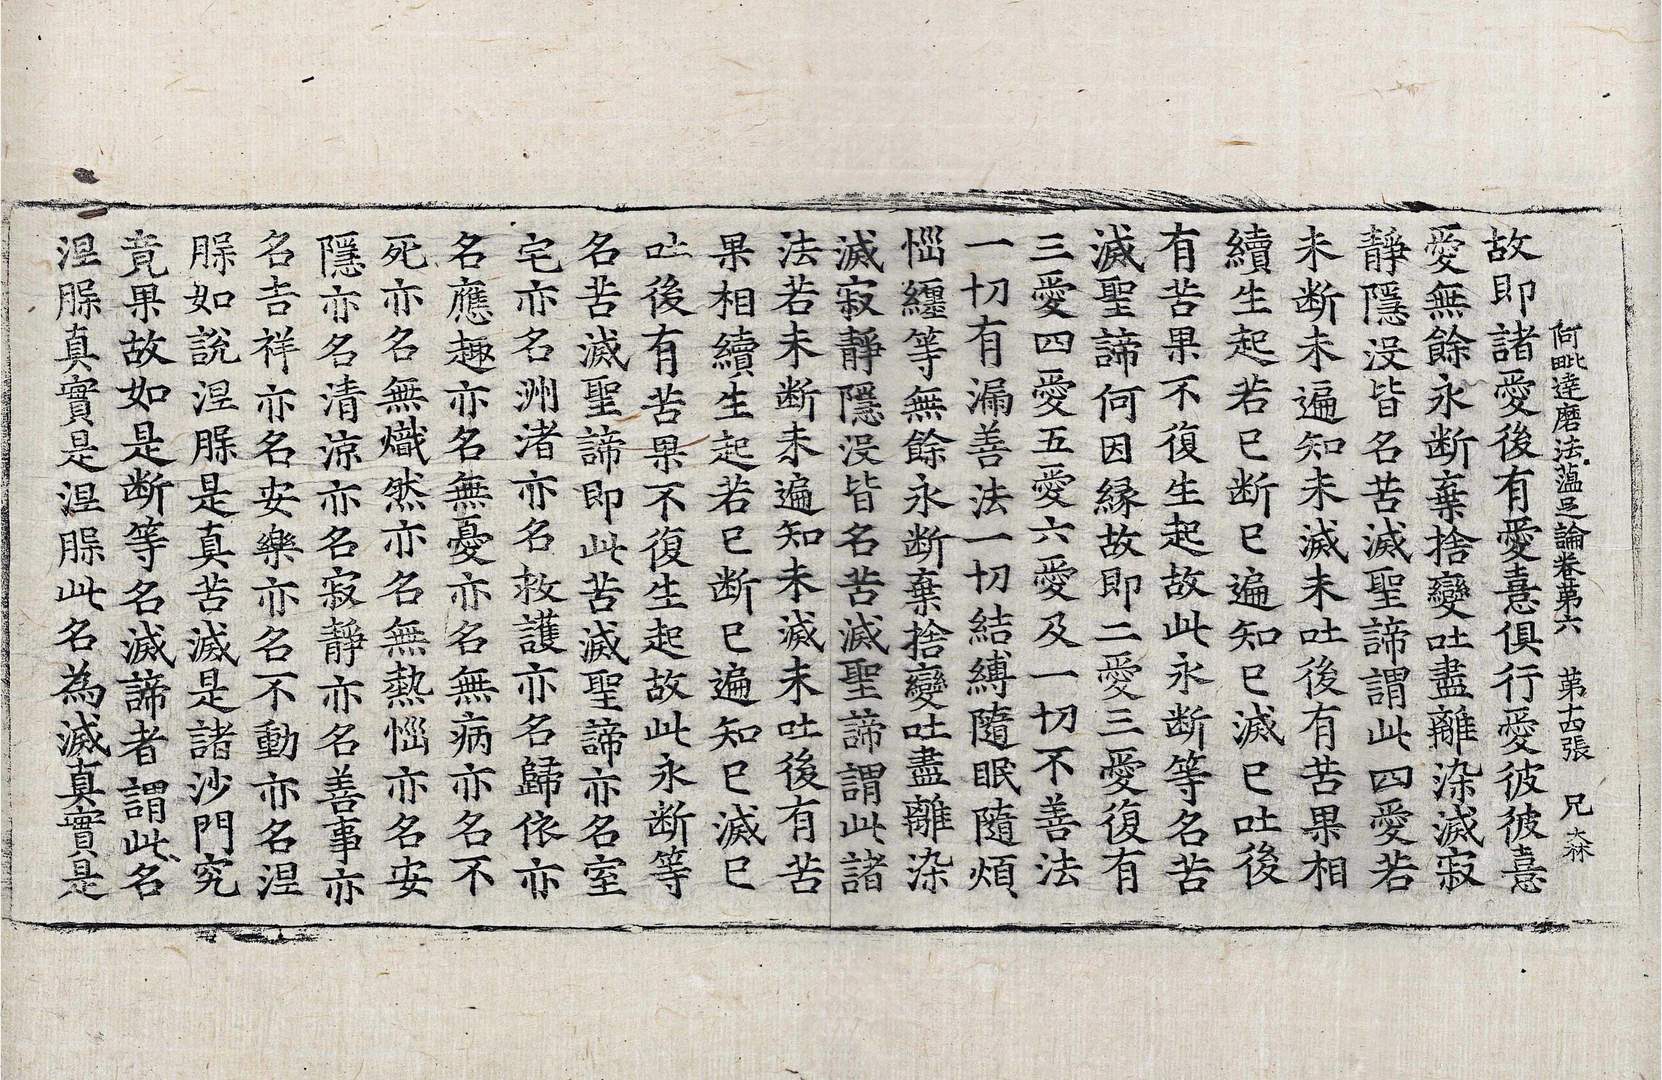 阿毗達磨法蘊足論卷第六　第十四張　兄　森
故即諸愛後有愛憙俱行愛彼彼憙
愛無餘永断棄捨變吐盡離染滅寂
靜隱没皆名苦滅聖諦謂此四愛若
未断未遍知未滅未吐後有苦果相
續生起若已断已遍知已滅已吐後
有苦果不復生起故此永断等名苦
滅聖諦何因緣故即二愛三愛復有
三愛四愛五愛六愛及一切不善法
一切有漏善法一切結縛隨眠隨煩
惱纏等無餘永断棄捨變吐盡離染
滅寂靜隱没皆名苦滅聖諦謂此諸
法若未断未遍知未滅未吐後有苦
果相續生起若已断已遍知已滅已
吐後有苦果不復生起故此永断等
名苦滅聖諦即此苦滅聖諦亦名室
宅亦名洲渚亦名救護亦名歸依亦
名應趣亦名無憂亦名無病亦名不
死亦名無熾然亦名無熱惱亦名安
隱亦名清涼亦名寂靜亦名善事亦
名吉祥亦名安樂亦名不動亦名涅
槃如說涅槃是真苦滅是諸沙門究
竟果故如是断等名滅諦者謂此名
涅槃真實是涅槃此名為滅真實是